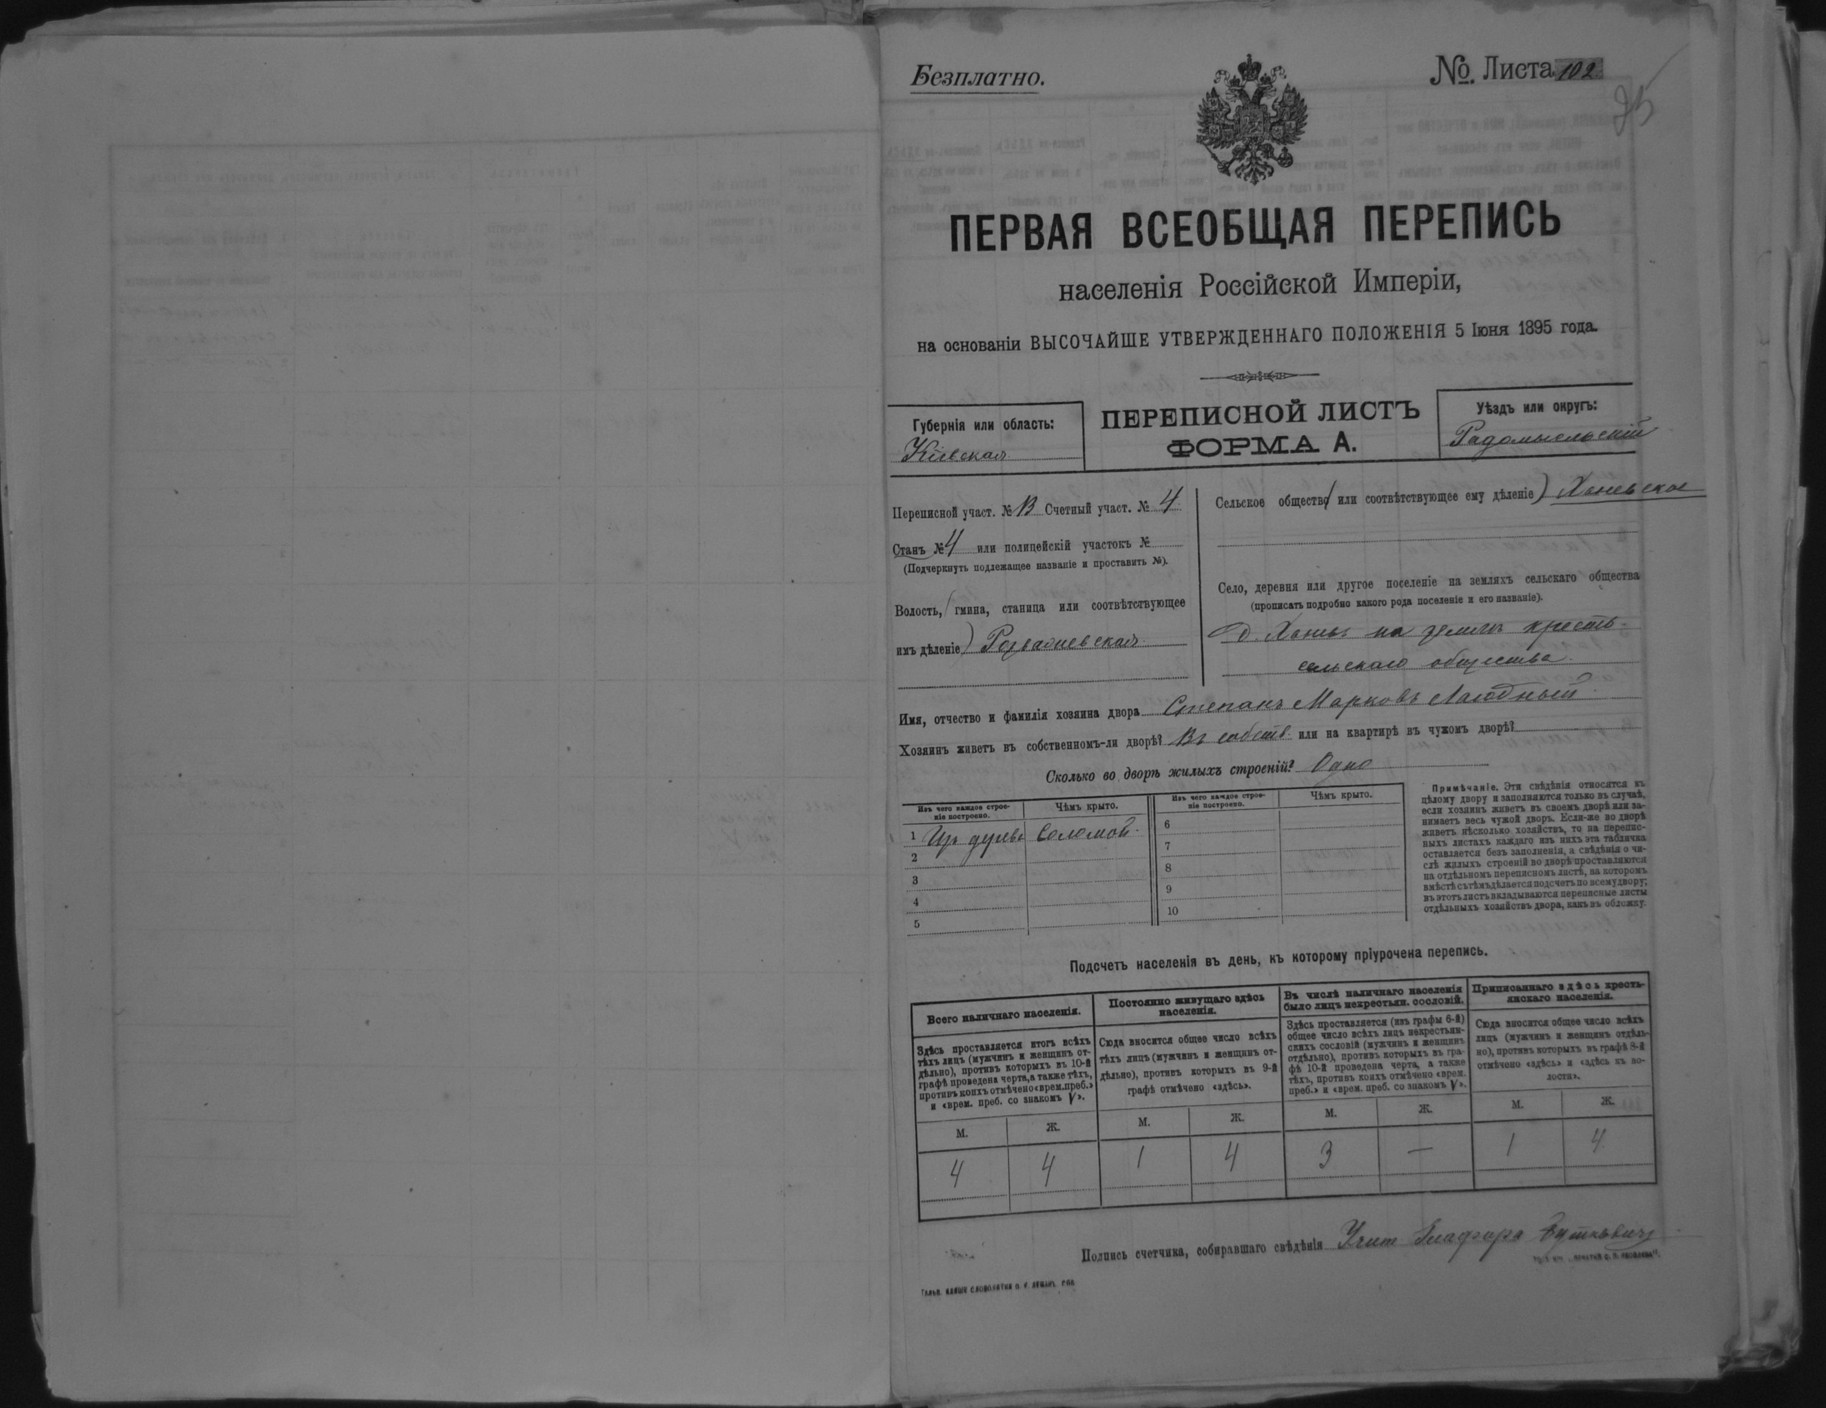 Безплатно.
№ Листа 102
25
ПЕРВАЯ ВСЕОБЩАЯ ПЕРЕПИСЬ
населенія Россійской Имперіи,
на основаніи ВЫСОЧАЙШЕ УТВЕРЖДЕННАГО ПОЛОЖЕНІЯ 5 Іюня 1895 года.
Губернія или область:
Кіевская
ПЕРЕПИСНОЙ ЛИСТЪ
ФОРМА А.
Уѣздъ или округъ:
Радомысльскій
Переписной участ. № В Счетный участ. № 4
Станъ № 4 или полицейскій участокъ №
(Подчеркнуть подлежащее названіе и проставить №).
Волость, (гмина, станица или соотвѣтствующее
имъ дѣленіе) Розважевская
Сельское общество (или соотвѣтствующее ему дѣленіе) Ханевское
Село, деревня или другое поселеніе на земляхъ сельскаго общества
(прописать подробно какого рода поселеніе и его названіе).
д. Ханевъ на землѣ кресть-
сельскаго общества
Имя, отчество и фамилія хозяина двора Степанъ Марковъ Лагодный
Хозяинъ живетъ въ собственномъ-ли дворѣ? Въ собств. или на квартирѣ въ чужомъ дворѣ?
Сколько во дворѣ жилыхъ строеній? Одно
Изъ чего каждое строе-
ніе построено.
Чѣмъ крыто.
1 Из дерева Соломой.
2
3
4
5
Изъ чего каждое строе-
ніе построено.
Чѣмъ крыто.
6
7
8
9
10
Примѣчаніе. Эти свѣдѣнія относятся къ
цѣлому двору и заполняются только въ случаѣ,
если хозяинъ живетъ въ своемъ дворѣ или за-
нимаетъ весь чужой дворъ. Если-же во дворѣ
живетъ нѣсколько хозяйствъ, то на перепис-
ныхъ листахъ каждаго изъ нихъ эта табличка
оставляется безъ заполненія, а свѣдѣнія о чи-
слѣ жилыхъ строеній во дворѣ проставляются
на отдѣльномъ переписномъ листѣ, на которомъ
вмѣстѣ съ тѣмъ дѣлается подсчетъ по всему двору;
въ этотъ листъ вкладываются переписные листы
отдѣльныхъ хозяйствъ двора, какъ въ обложку.
Подсчетъ населенія въ день, къ которому пріурочена перепись.
Всего наличнаго населенія.
Здѣсь проставляется итогъ всѣхъ
тѣхъ лицъ (мужчинъ и женщинъ от-
дѣльно), противъ которыхъ въ 10-й
графѣ проведена черта, а также тѣхъ,
противъ коихъ отмѣчено «врем. преб.»
и «врем. преб. со знакомъ V».
М. Ж.
4 4
Постоянно живущаго здѣсь
населенія.
Сюда вносится общее число всѣхъ
тѣхъ лицъ (мужчинъ и женщинъ от-
дѣльно), противъ которыхъ въ 9-й
графѣ отмѣчено «здѣсь».
М. Ж.
1 4
Въ числѣ наличнаго населенія
было лицъ некрестьян. сословій.
Здѣсь проставляется (изъ графы 6-й)
общее число всѣхъ лицъ некрестьян-
скихъ сословій (мужчинъ и женщинъ
отдѣльно), противъ которыхъ въ гра-
фѣ 10-й проведена черта, а также
тѣхъ, противъ коихъ отмѣчено «врем.
преб.» и «врем. преб. со знакомъ V».
М. Ж.
3 —
Приписаннаго здѣсь кресть-
янскаго населенія.
Сюда вносится общее число всѣхъ
лицъ (мужчинъ и женщинъ отдѣль-
но), противъ которыхъ въ графѣ 8-й
отмѣчено «здѣсь» и «здѣсь къ во-
лости».
М. Ж.
1 4
Подпись счетчика, собиравшаго свѣдѣнія Учит Глафира